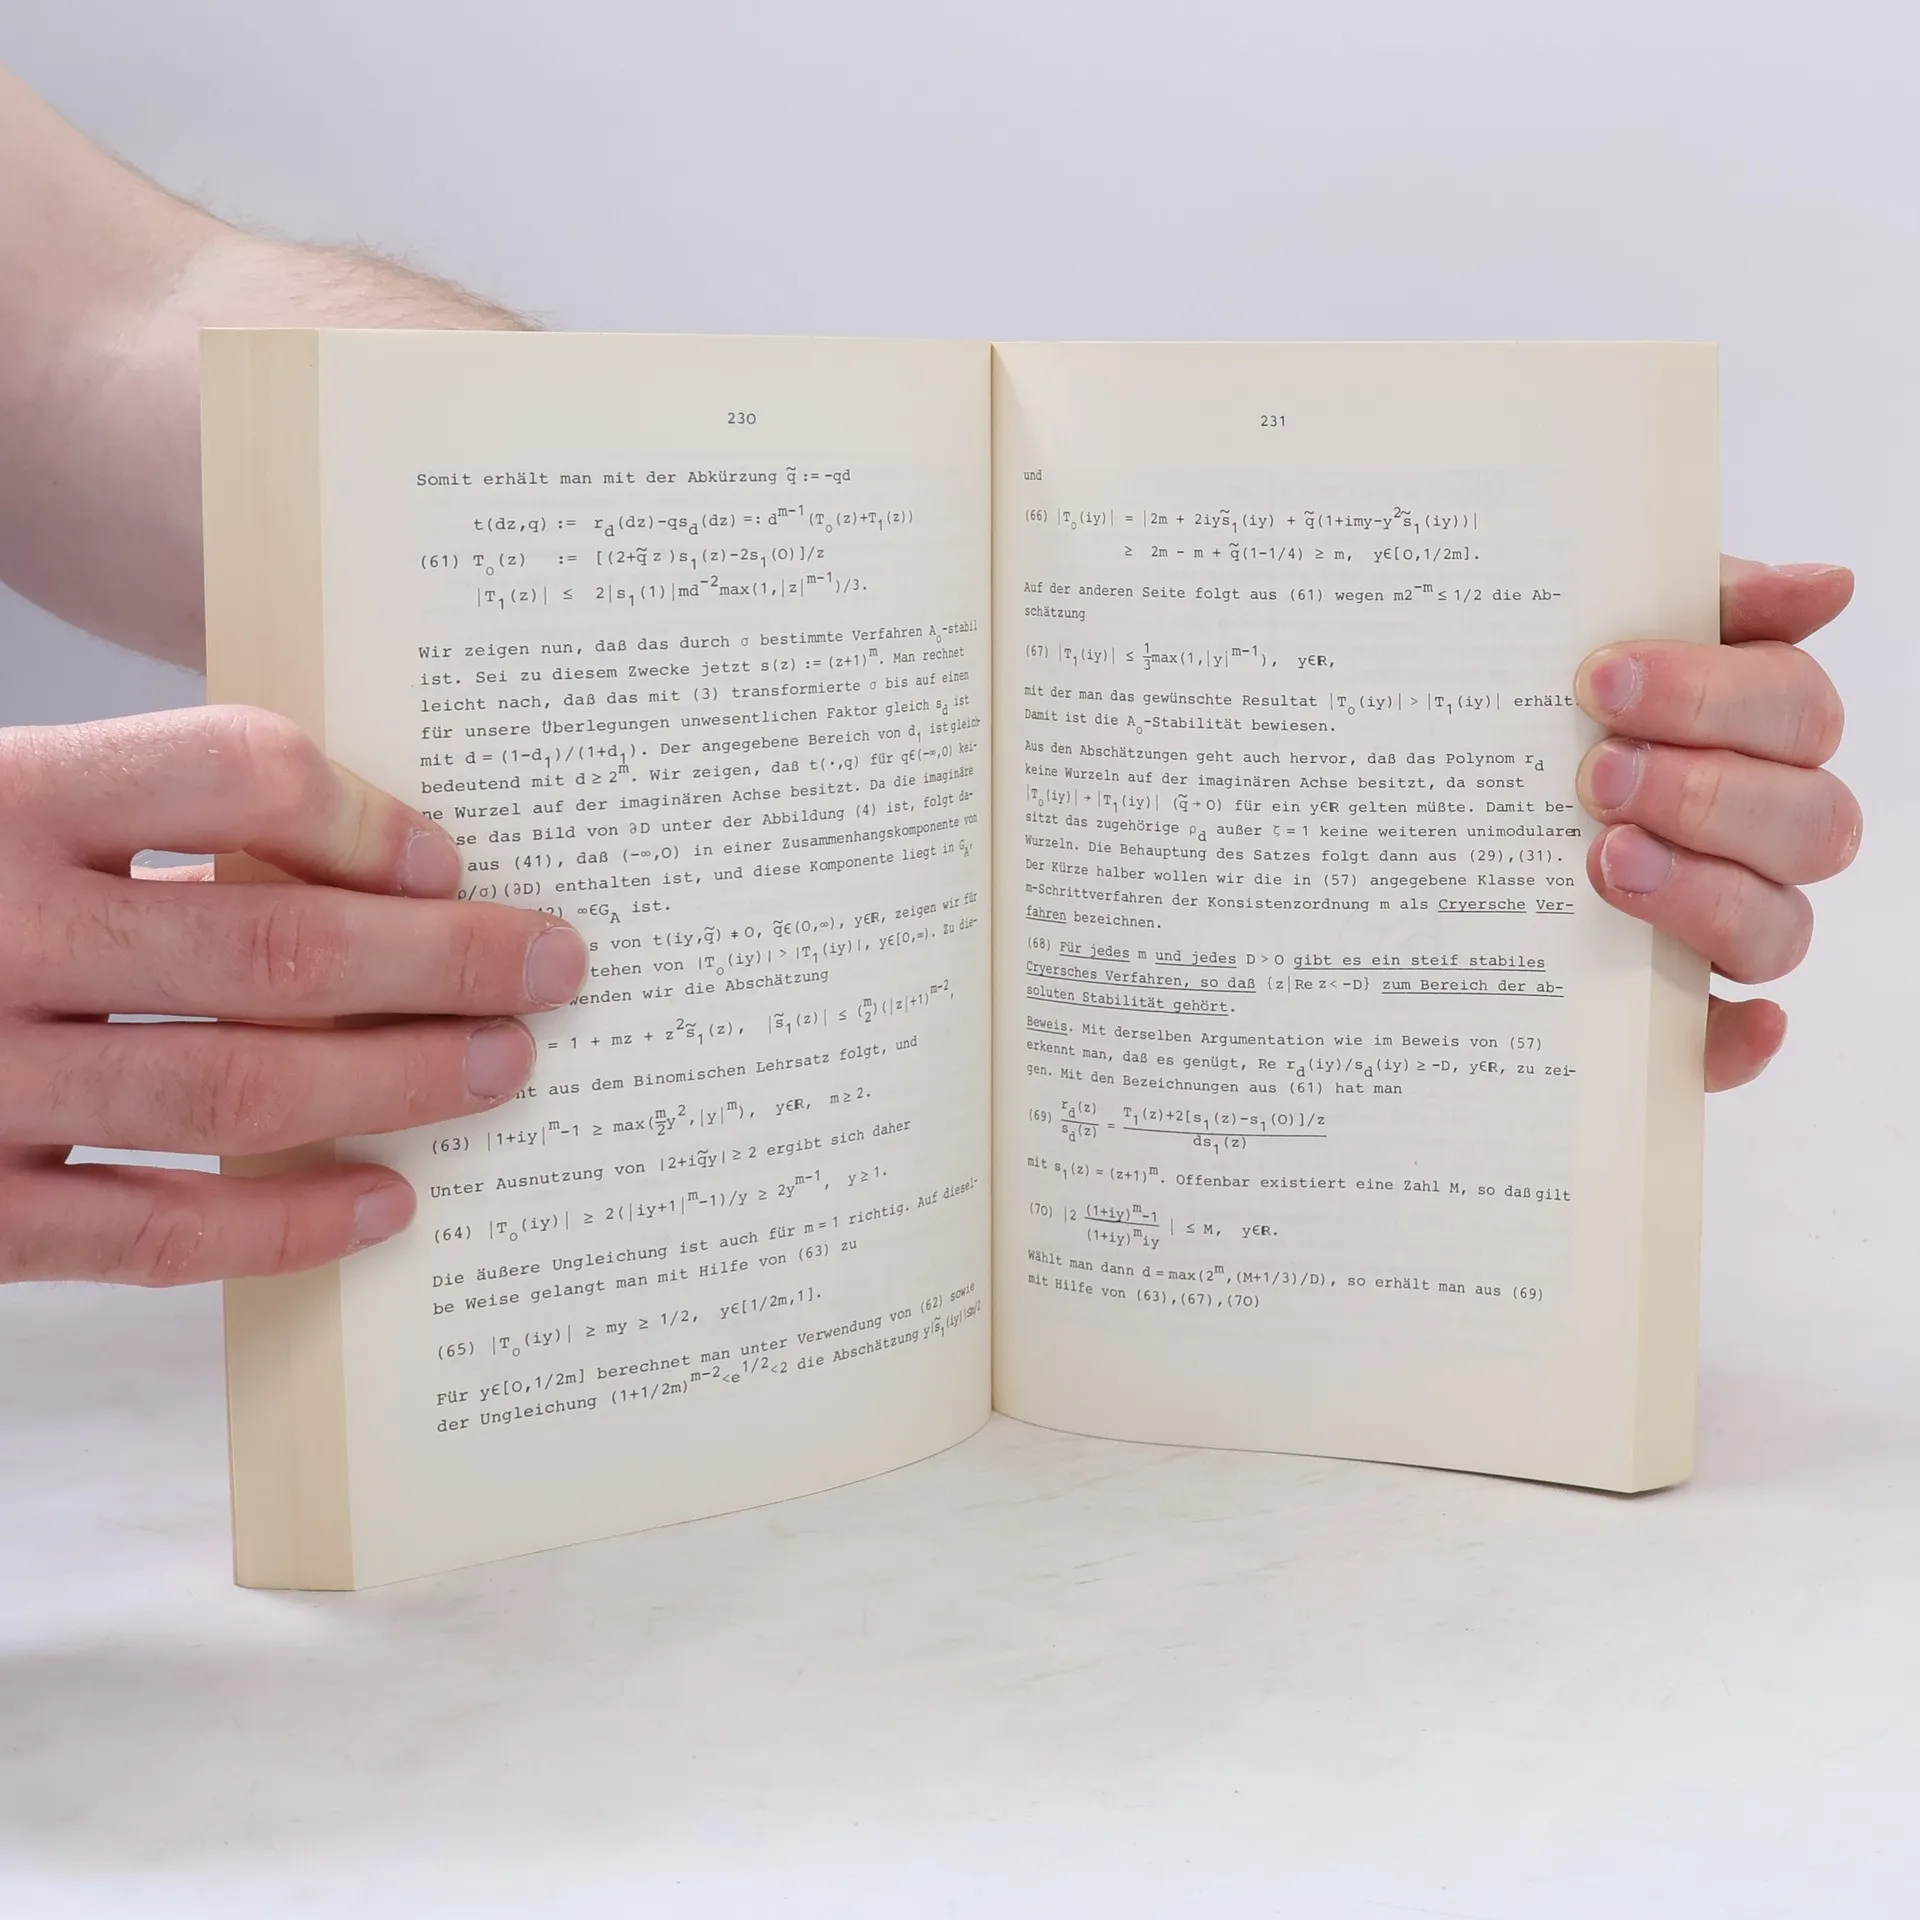 230
Somit erhält man mit der Abkürzung q̃ := -qd
t(dz,q) := r_d(dz)-qs_d(dz) =: d^{m-1}(T_o(z)+T_1(z))
(61) T_o(z) := [(2+q̃z)s_1(z)-2s_1(0)]/z
|T_1(z)| ≤ 2|s_1(1)|md^{-2}max(1,|z|^{m-1})/3.
Wir zeigen nun, daß das durch σ bestimmte Verfahren A_o-stabil
ist. Sei zu diesem Zwecke jetzt s(z) := (z+1)^m. Man rechnet
leicht nach, daß das mit (3) transformierte σ bis auf einen
für unsere Überlegungen unwesentlichen Faktor gleich s_d ist
mit d = (1-d_1)/(1+d_1). Der angegebene Bereich von d_1 ist gleich-
bedeutend mit d ≥ 2^m. Wir zeigen, daß t(·,q) für q∈(-∞,0) kei-
ne Wurzel auf der imaginären Achse besitzt. Da die imaginäre
se das Bild von ∂D unter der Abbildung (4) ist, folgt da-
aus (41), daß (-∞,0) in einer Zusammenhangskomponente von
ρ/σ)(∂D) enthalten ist, und diese Komponente liegt in G_A,
∞∈G_A ist.
s von t(iy,q̃) ≠ 0, q̃∈(0,∞), y∈R, zeigen wir für
tehen von |T_o(iy)| > |T_1(iy)|, y∈[0,∞). Zu die-
wenden wir die Abschätzung
= 1 + mz + z^2 s̃_1(z), |s̃_1(z)| ≤ (m 2)(|z|+1)^{m-2},
ht aus dem Binomischen Lehrsatz folgt, und
(63) |1+iy|^m-1 ≥ max(m/2 y^2,|y|^m), y∈R, m ≥ 2.
Unter Ausnutzung von |2+iq̃y| ≥ 2 ergibt sich daher
(64) |T_o(iy)| ≥ 2(|iy+1|^m-1)/y ≥ 2y^{m-1}, y ≥ 1.
Die äußere Ungleichung ist auch für m = 1 richtig. Auf diesel-
be Weise gelangt man mit Hilfe von (63) zu
(65) |T_o(iy)| ≥ my ≥ 1/2, y∈[1/2m,1].
Für y∈[0,1/2m] berechnet man unter Verwendung von (62) sowie
der Ungleichung (1+1/2m)^{m-2}<e^{1/2}<2 die Abschätzung y|s̃_1(iy)|≤m/2
231
und
(66) |T_o(iy)| = |2m + 2iys̃_1(iy) + q̃(1+imy-y^2 s̃_1(iy))|
≥ 2m - m + q̃(1-1/4) ≥ m, y∈[0,1/2m].
Auf der anderen Seite folgt aus (61) wegen m2^{-m} ≤ 1/2 die Ab-
schätzung
(67) |T_1(iy)| ≤ 1/3 max(1,|y|^{m-1}), y∈R,
mit der man das gewünschte Resultat |T_o(iy)| > |T_1(iy)| erhält.
Damit ist die A_o-Stabilität bewiesen.
Aus den Abschätzungen geht auch hervor, daß das Polynom r_d
keine Wurzeln auf der imaginären Achse besitzt, da sonst
|T_o(iy)| → |T_1(iy)| (q̃ → 0) für ein y∈R gelten müßte. Damit be-
sitzt das zugehörige ρ_d außer ζ = 1 keine weiteren unimodularen
Wurzeln. Die Behauptung des Satzes folgt dann aus (29),(31).
Der Kürze halber wollen wir die in (57) angegebene Klasse von
m-Schrittverfahren der Konsistenzordnung m als Cryersche Ver-
fahren bezeichnen.
(68) Für jedes m und jedes D > 0 gibt es ein steif stabiles
Cryersches Verfahren, so daß {z|Re z< -D} zum Bereich der ab-
soluten Stabilität gehört.
Beweis. Mit derselben Argumentation wie im Beweis von (57)
erkennt man, daß es genügt, Re r_d(iy)/s_d(iy) ≥ -D, y∈R, zu zei-
gen. Mit den Bezeichnungen aus (61) hat man
(69) r_d(z)/s_d(z) = T_1(z)+2[s_1(z)-s_1(0)]/z / ds_1(z)
mit s_1(z) = (z+1)^m. Offenbar existiert eine Zahl M, so daß gilt
(70) |2 (1+iy)^m-1 / (1+iy)^m iy | ≤ M, y∈R.
Wählt man dann d = max(2^m,(M+1/3)/D), so erhält man aus (69)
mit Hilfe von (63),(67),(70)